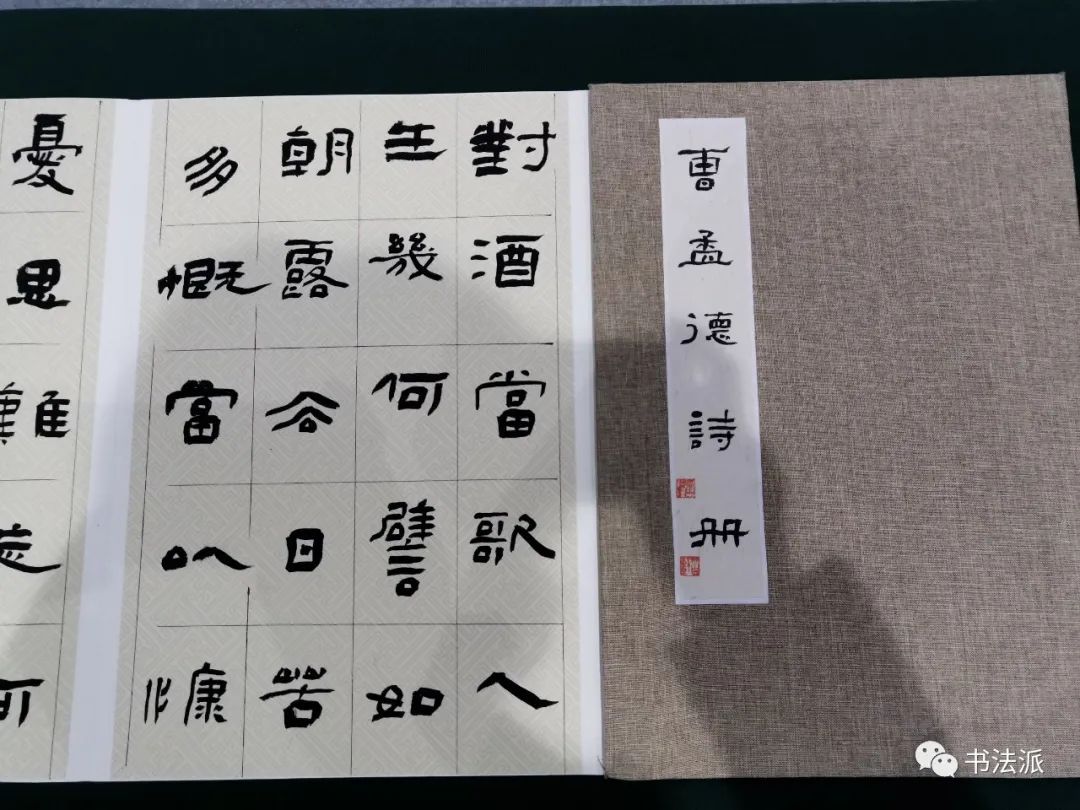 曹孟德詩册
對酒當歌人
生幾何譬如
朝露去日苦
多慨當以慷
憂思難忘何
书法派